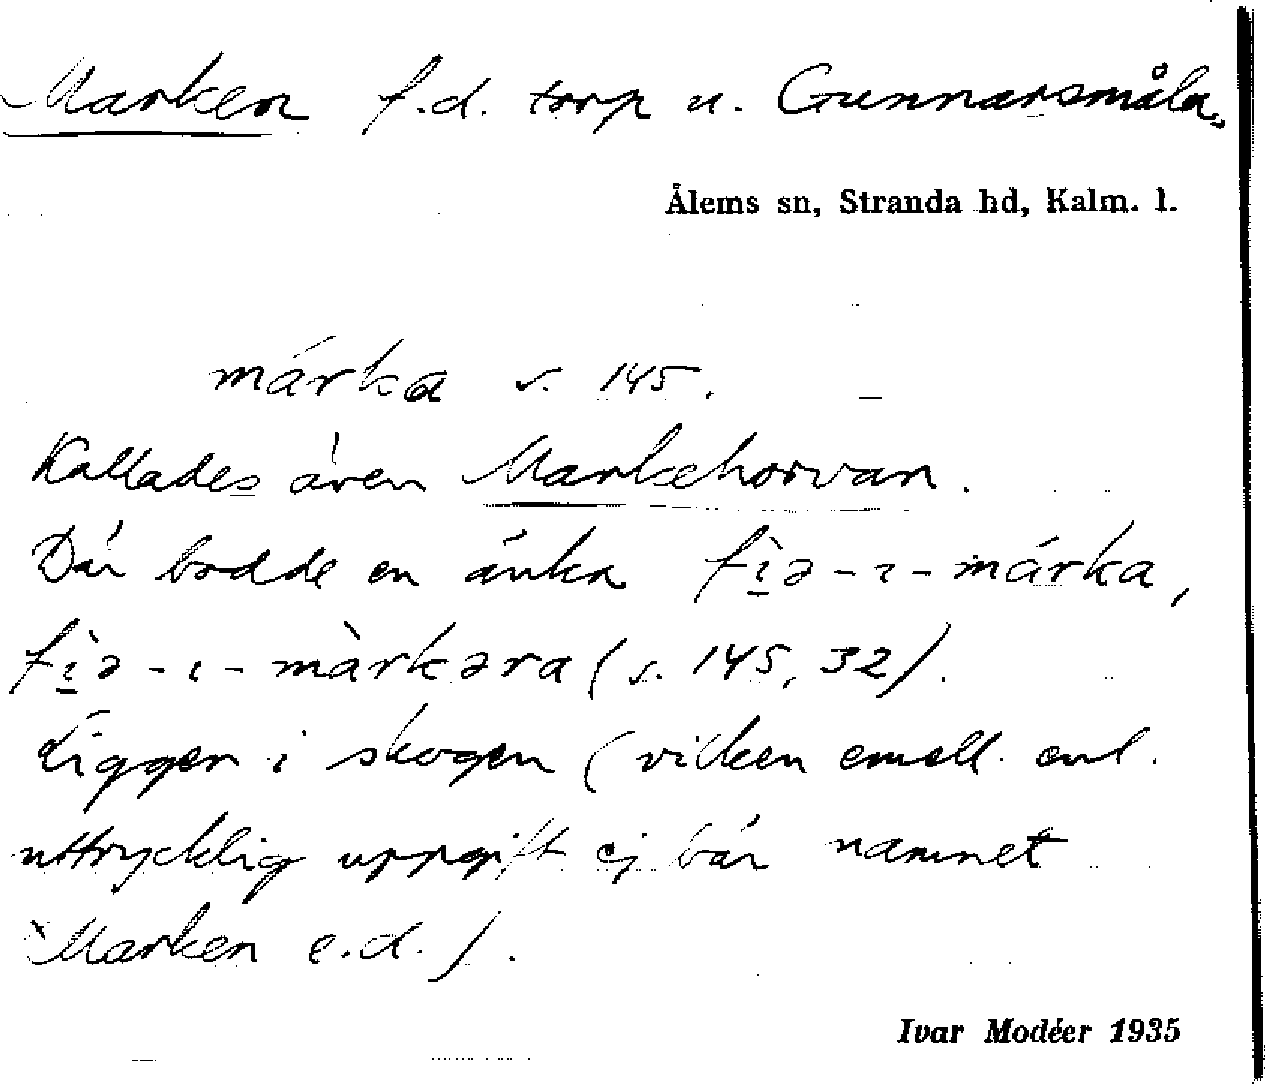 Marken f.d. torp u. Gunnarsmåla,
Ålems sn, Stranda hd, Kalm. l.
márka s. 145.
Kallades även Markehorvan.
Där bodde en änka fìə-ı-márka,
fìə-ı-màrkəra (s. 145, 32).
Ligger i skogen (vilken emell. enl.
uttrycklig uppgift ej bär namnet
Marken e.d.).
Ivar Modéer 1935